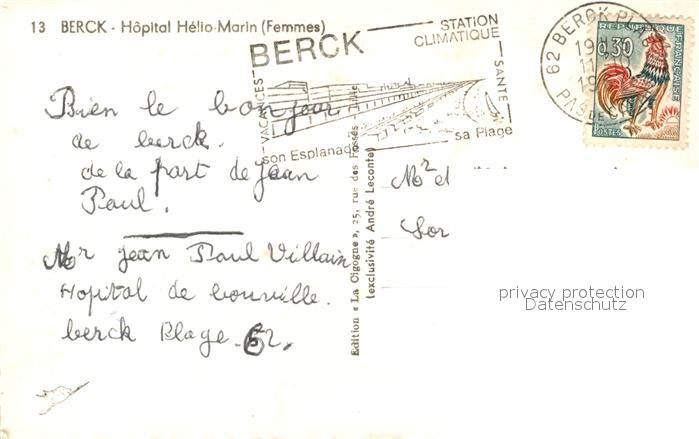 13 BERCK - Hôpital Hélio-Marin (Femmes)
BERCK
STATION
CLIMATIQUE
VACANCES
SANTÉ
son Esplanade
sa Plage
62 BERCK PLAGE
PAS DE
0,30
REPUBLIQUE FRANÇAISE
POSTES
Bien le bonjour
de berck.
de la part de Jean
Paul.
Mr Jean Paul Villain
Hopital de bouville.
berck Plage. 62.
Edition « La Cigogne », 25, rue des Fossés
(exclusivité André Leconte)
privacy protection
Datenschutz